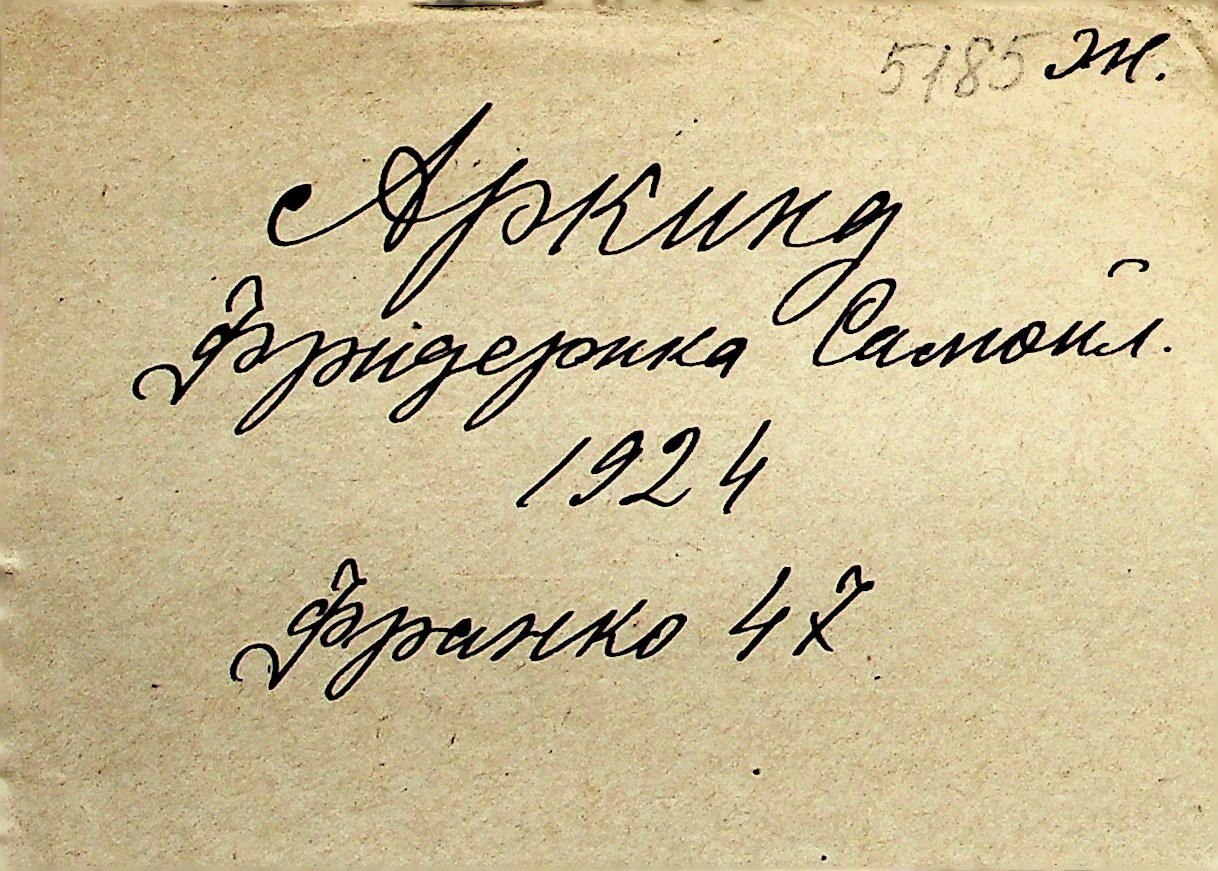 5185 ж.
Аркинд
Фрідерика Самоил.
1924
Франко 47